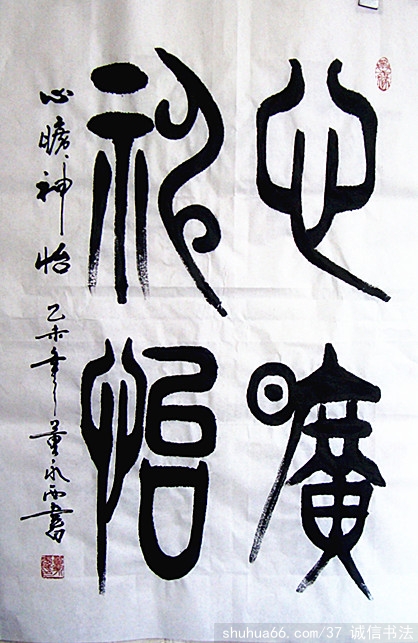 心曠
神怡
心曠神怡 乙未年 董永西書
shuhua66.com/37 诚信书法